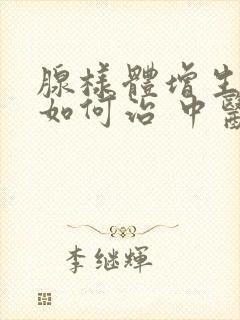 腺樣體增生
如何治 中醫
李继輝